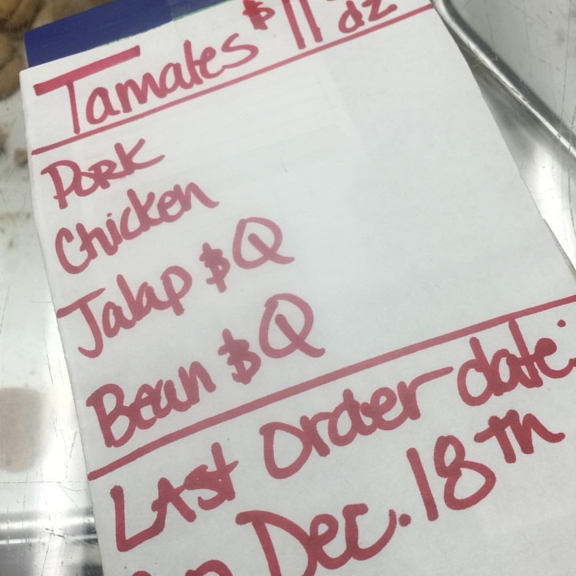 Tamales $11 dz
Pork
Chicken
Jalap $Q
Bean $Q
Last order date:
Dec. 18th